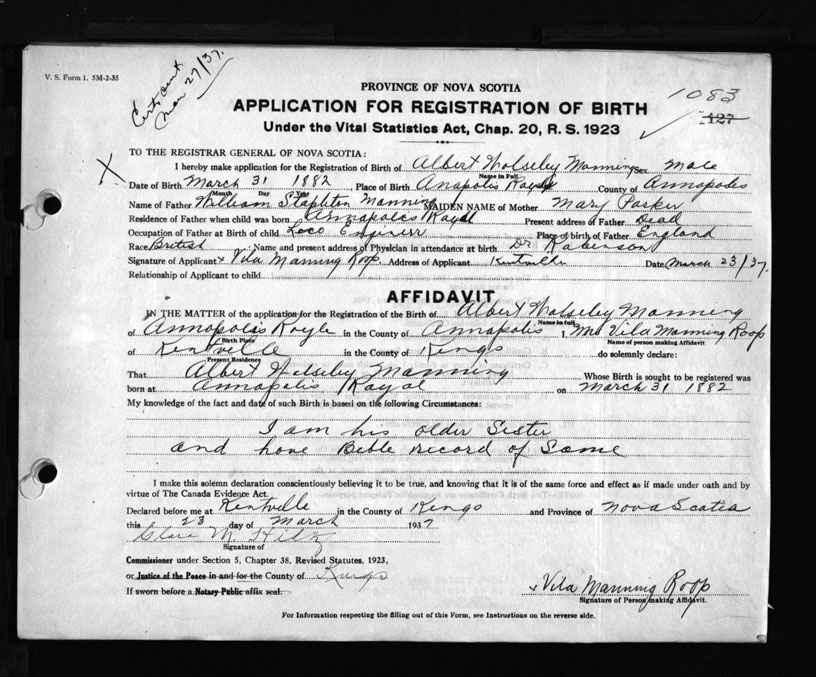 V. S. Form 1. 5M-2-35
Mar 27/37.
PROVINCE OF NOVA SCOTIA
1083
APPLICATION FOR REGISTRATION OF BIRTH
427
Under the Vital Statistics Act, Chap. 20, R. S. 1923
TO THE REGISTRAR GENERAL OF NOVA SCOTIA:
I hereby make application for the Registration of Birth of Albert Wolseley Manning Sex Male
Name in Full
Date of Birth March 31 1882, Place of Birth Anapolis Royal County of Annapolis
Month Day Year
Name of Father William Stapleton Manning MAIDEN NAME of Mother Mary Parker
Residence of Father when child was born Annapolis Royal Present address of Father Dead
Occupation of Father at Birth of child Loco Engineer Place of birth of Father England
Race British Name and present address of Physician in attendance at birth Dr Robinson
Signature of Applicant x Vila Manning Roop. Address of Applicant Kentville Date March 23/37.
Relationship of Applicant to child
AFFIDAVIT
IN THE MATTER of the application for the Registration of the Birth of Albert Wolseley Manning
Name in full
of Annapolis Royle in the County of Annapolis, Mrs Vila Manning Roop
Birth Place Name of person making Affidavit
of Kentville in the County of Kings do solemnly declare:
Present Residence
That Albert Wolseley Manning Whose Birth is sought to be registered was
born at Annapolis Royal on March 31 1882
My knowledge of the fact and date of such Birth is based on the following Circumstances:
I am his older Sister
and have Bible record of Same
I make this solemn declaration conscientiously believing it to be true, and knowing that it is of the same force and effect as if made under oath and by
virtue of The Canada Evidence Act.
Declared before me at Kentville in the County of Kings and Province of Nova Scotia
this 23 day of March 1937
M. Hilz
Signature of
Commissioner under Section 5, Chapter 38, Revised Statutes, 1923,
or Justice of the Peace in and for the County of Kings
If sworn before a Notary Public affix seal.
x Vila Manning Roop
Signature of Person making Affidavit.
For Information respecting the filling out of this Form, see Instructions on the reverse side.